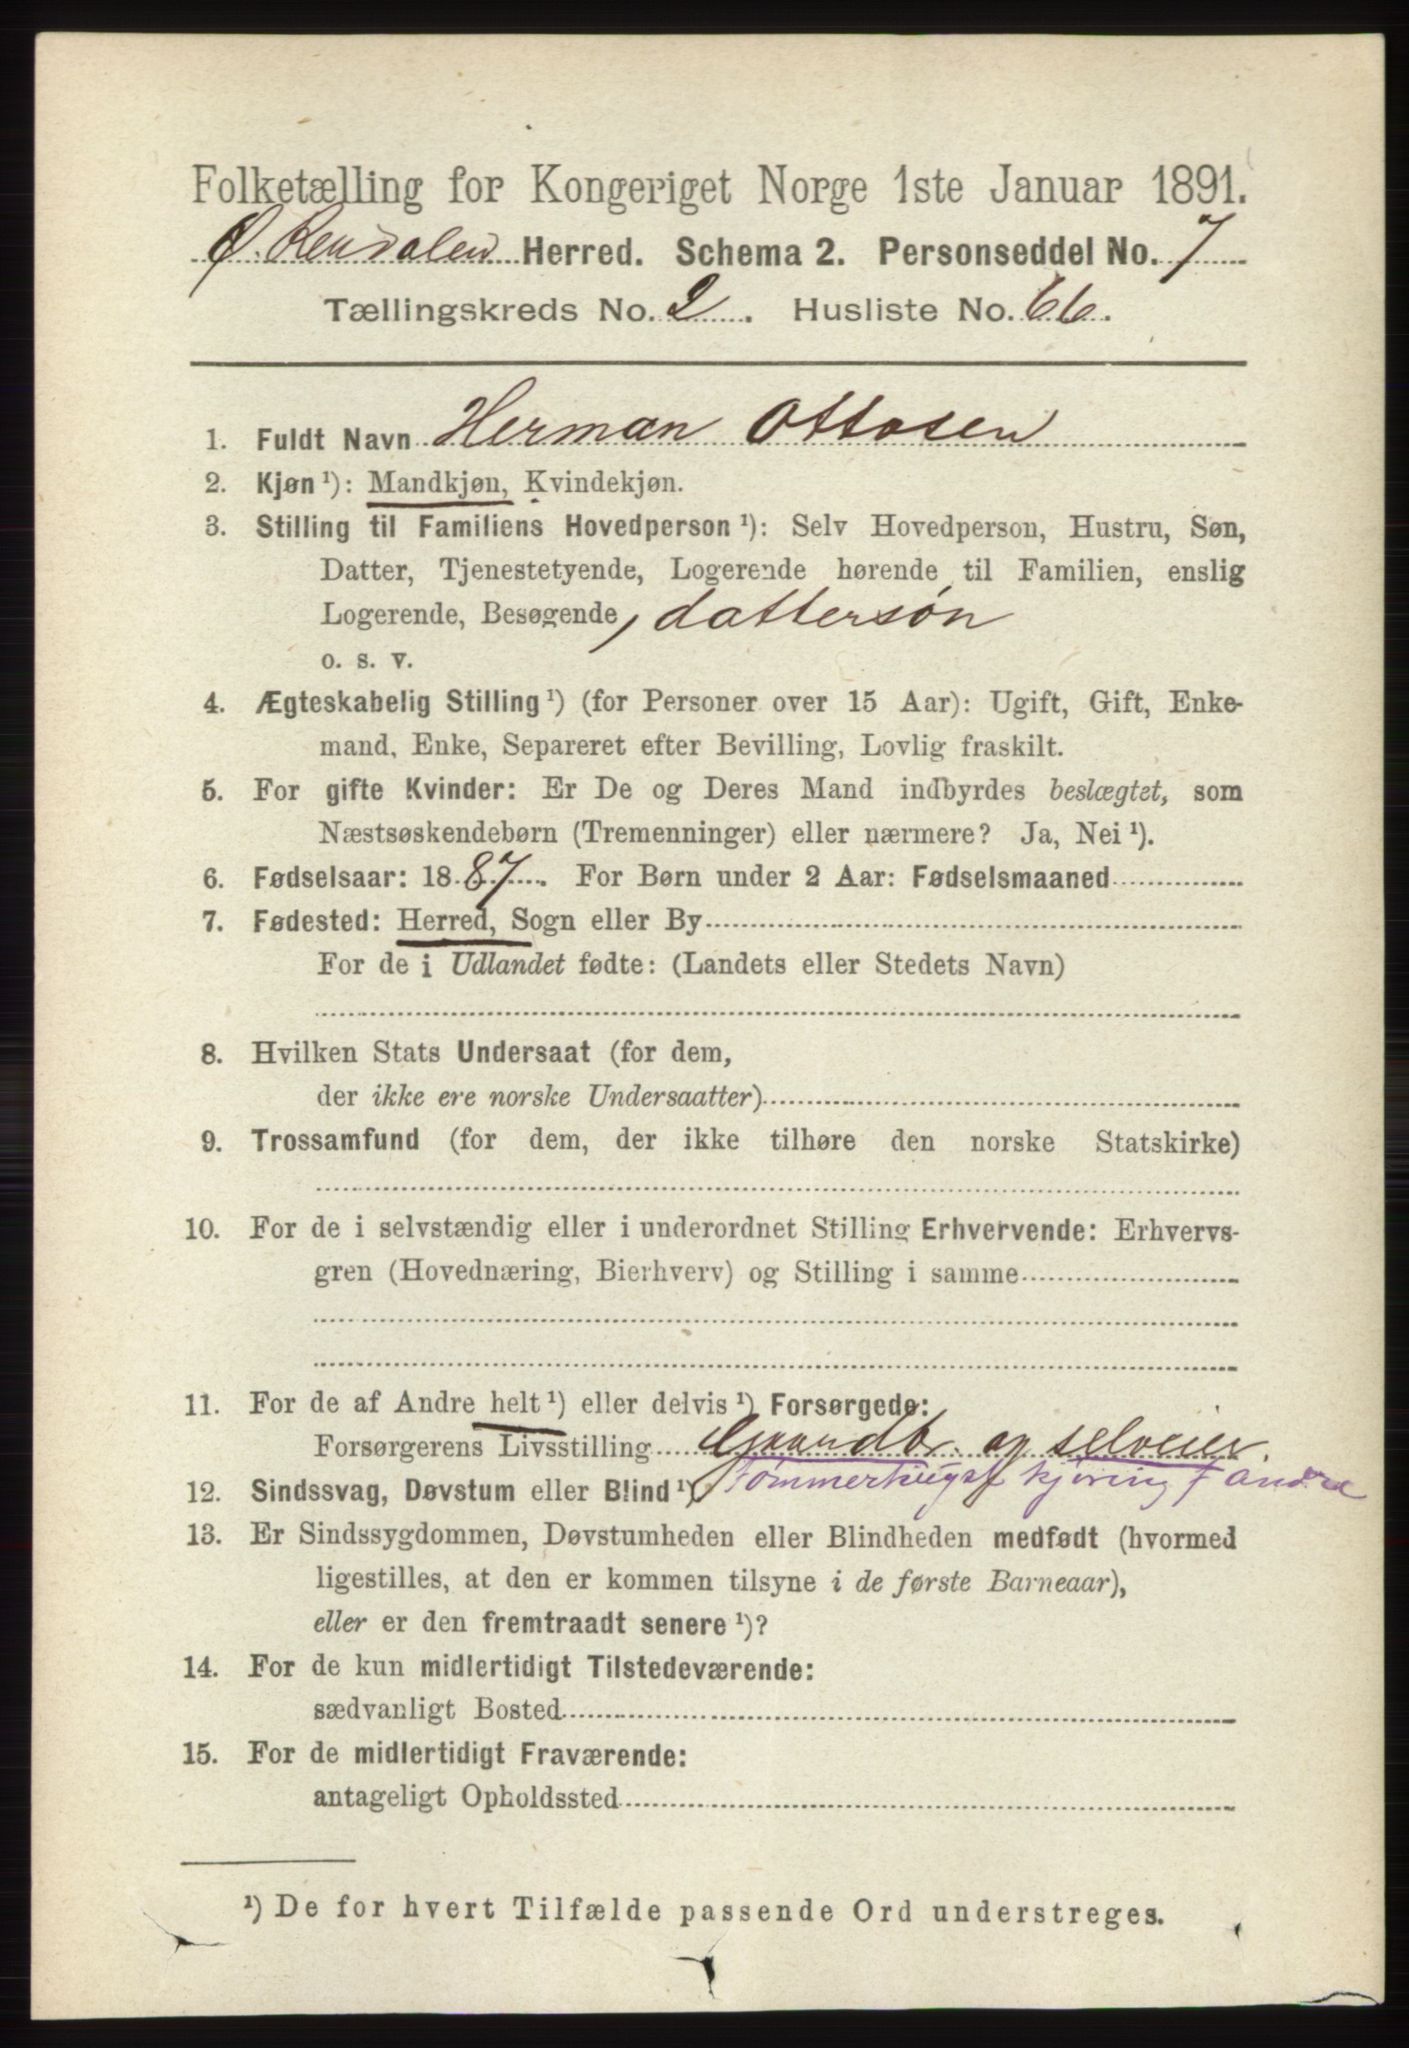 Folketælling for Kongeriget Norge 1ste Januar 1891.
Ø. Rendalen Herred. Schema 2. Personseddel No. 7
Tællingskreds No. 2. Husliste No. 66.
1. Fuldt Navn Herman Ottosen
2. Kjøn ¹): Mandkjøn, Kvindekjøn.
3. Stilling til Familiens Hovedperson ¹): Selv Hovedperson, Hustru, Søn,
Datter, Tjenestetyende, Logerende hørende til Familien, enslig
Logerende, Besøgende, dattersøn
o. s. v.
4. Ægteskabelig Stilling ¹) (for Personer over 15 Aar): Ugift, Gift, Enke-
mand, Enke, Separeret efter Bevilling, Lovlig fraskilt.
5. For gifte Kvinder: Er De og Deres Mand indbyrdes beslægtet, som
Næstsøskendebørn (Tremenninger) eller nærmere? Ja, Nei ¹).
6. Fødselsaar: 1887. For Børn under 2 Aar: Fødselsmaaned
7. Fødested: Herred, Sogn eller By
For de i Udlandet fødte: (Landets eller Stedets Navn)
8. Hvilken Stats Undersaat (for dem,
der ikke ere norske Undersaatter)
9. Trossamfund (for dem, der ikke tilhøre den norske Statskirke)
10. For de i selvstændig eller i underordnet Stilling Erhvervende: Erhvervs-
gren (Hovednæring, Bierhverv) og Stilling i samme
11. For de af Andre helt ¹) eller delvis ¹) Forsørgede:
Forsørgerens Livsstilling Gaardbr. og selveier.
12. Sindssvag, Døvstum eller Blind ¹). Tømmerhugst kjøring f andre
13. Er Sindssygdommen, Døvstumheden eller Blindheden medfødt (hvormed
ligestilles, at den er kommen tilsyne i de første Barneaar),
eller er den fremtraadt senere ¹)?
14. For de kun midlertidigt Tilstedeværende:
sædvanligt Bosted
15. For de midlertidigt Fraværende:
antageligt Opholdssted
¹) De for hvert Tilfælde passende Ord understreges.